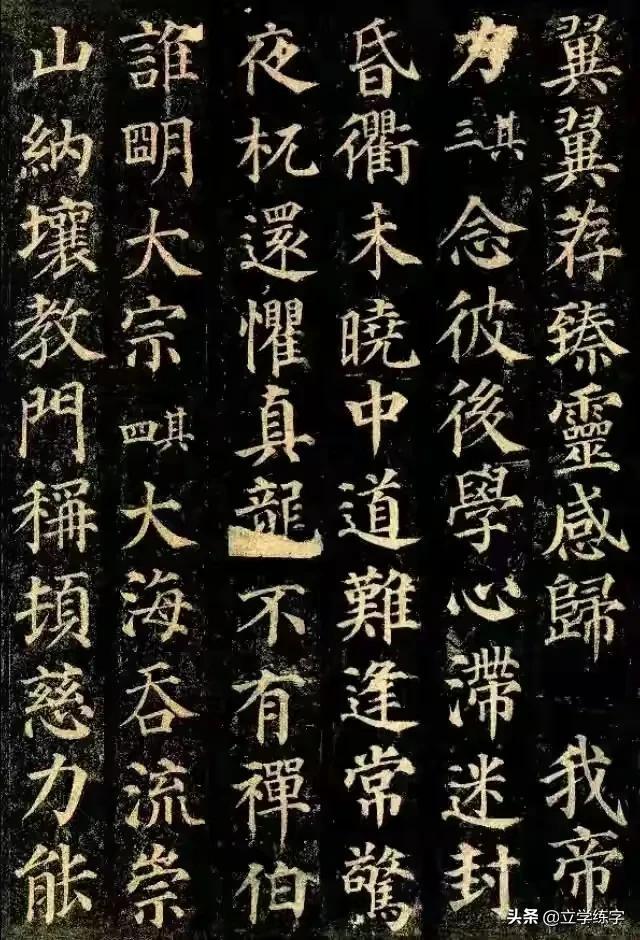 翼翼荐臻靈感歸 我帝
力其三念彼後學心滯迷封
昏衢未曉中道難逢常驚
夜杌還懼真龍不有禪伯
誰朙大宗其四大海吞流崇
山納壤教門稱頓慈力能
头条 @立学练字